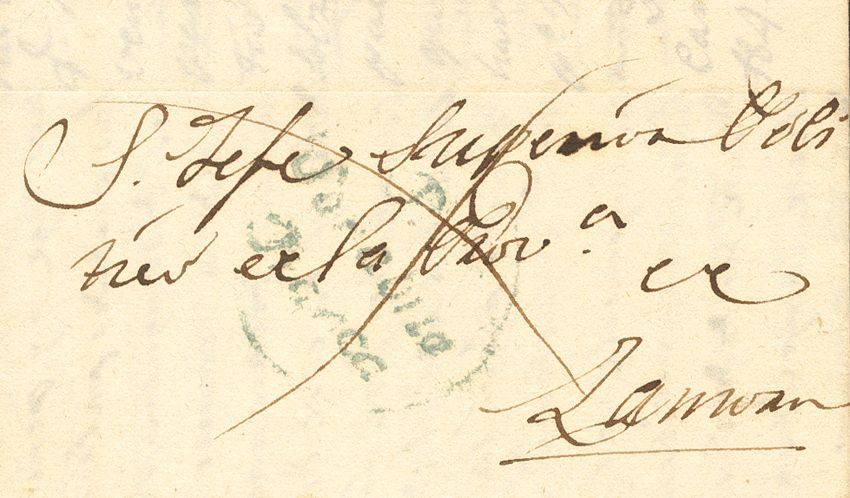 S. Jefe Superior Poli
tico de la Prov.ª de
Zamora